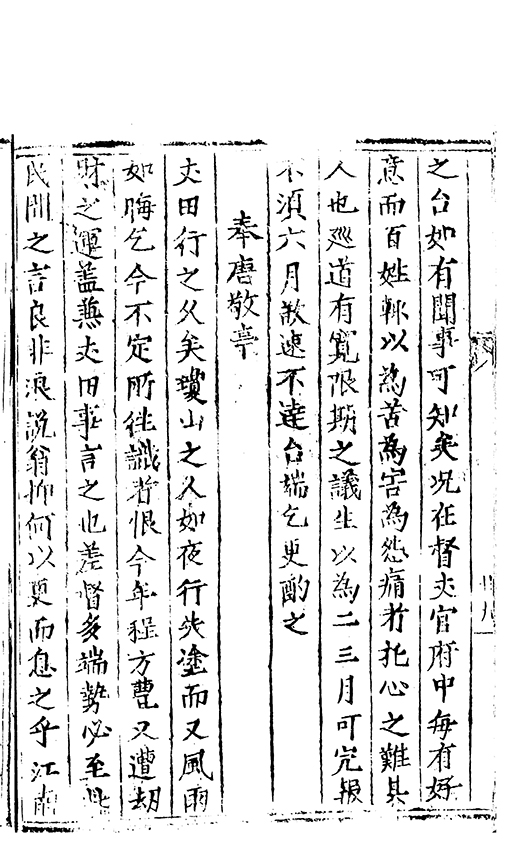 之台如有聞事可知矣况在督丈官府中每有好
意而百姓輒以為苦為害為怨痛者托心之難其
人也廵道有寬限期之議生以為二三月可完報
不須六月敢速不達台端乞更酌之
奉唐敬亭
丈田行之久矣瓊山之人如夜行失塗而又風雨
如晦乞今不定所徃識者恨今年程方豊又遭刼
財之運蓋無丈田事言之也差督多端勢必至此
民間之言良非浪說翁抑何以更而息之乎江南